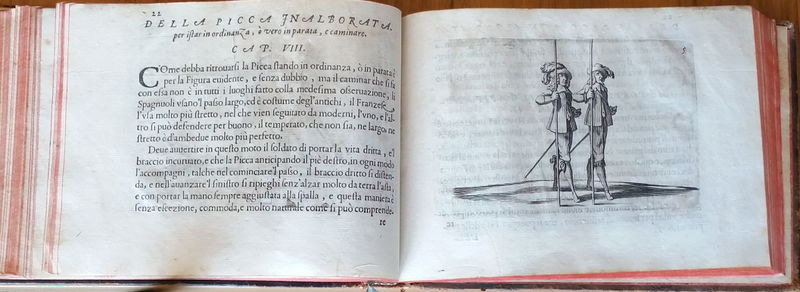 22
DELLA PICCA INALBORATA.
per istar in ordinanza, ò vero in parata, e caminare.
CAP. VIII.
COme debba ritrouarsi la Picca stando in ordinanza, ò in parata è
per la Figura euidente, e senza dubbio, ma il caminar che si fa
con essa non è in tutti i luoghi fatto colla medesima osseruazione, li
Spagnuoli vsano'l passo largo, ed è costume degl'antichi, il Franzese
l'vsa molto più stretto, nel che vien seguitato da moderni, l'vno, e l'al-
tro si può defendere per buono, il temperato, che non sia, ne largo, ne
stretto è d'ambedue molto più perfetto.
Deue auuertire in questo moto il soldato di portar la vita dritta, e'l
braccio incuruato, e che la Picca anticipando il piè destro, in ogni modo
l'accompagni, talche nel cominciare'l passo, il braccio dritto si disten-
da, e nell'auanzare'l sinistro si ripieghi senz'alzar molto da terra l'asta,
e con portar la mano sempre aggiustata alla spalla, e questa maniera è
senza eccezione, commoda, e molto naturale come si può comprende-
re
5